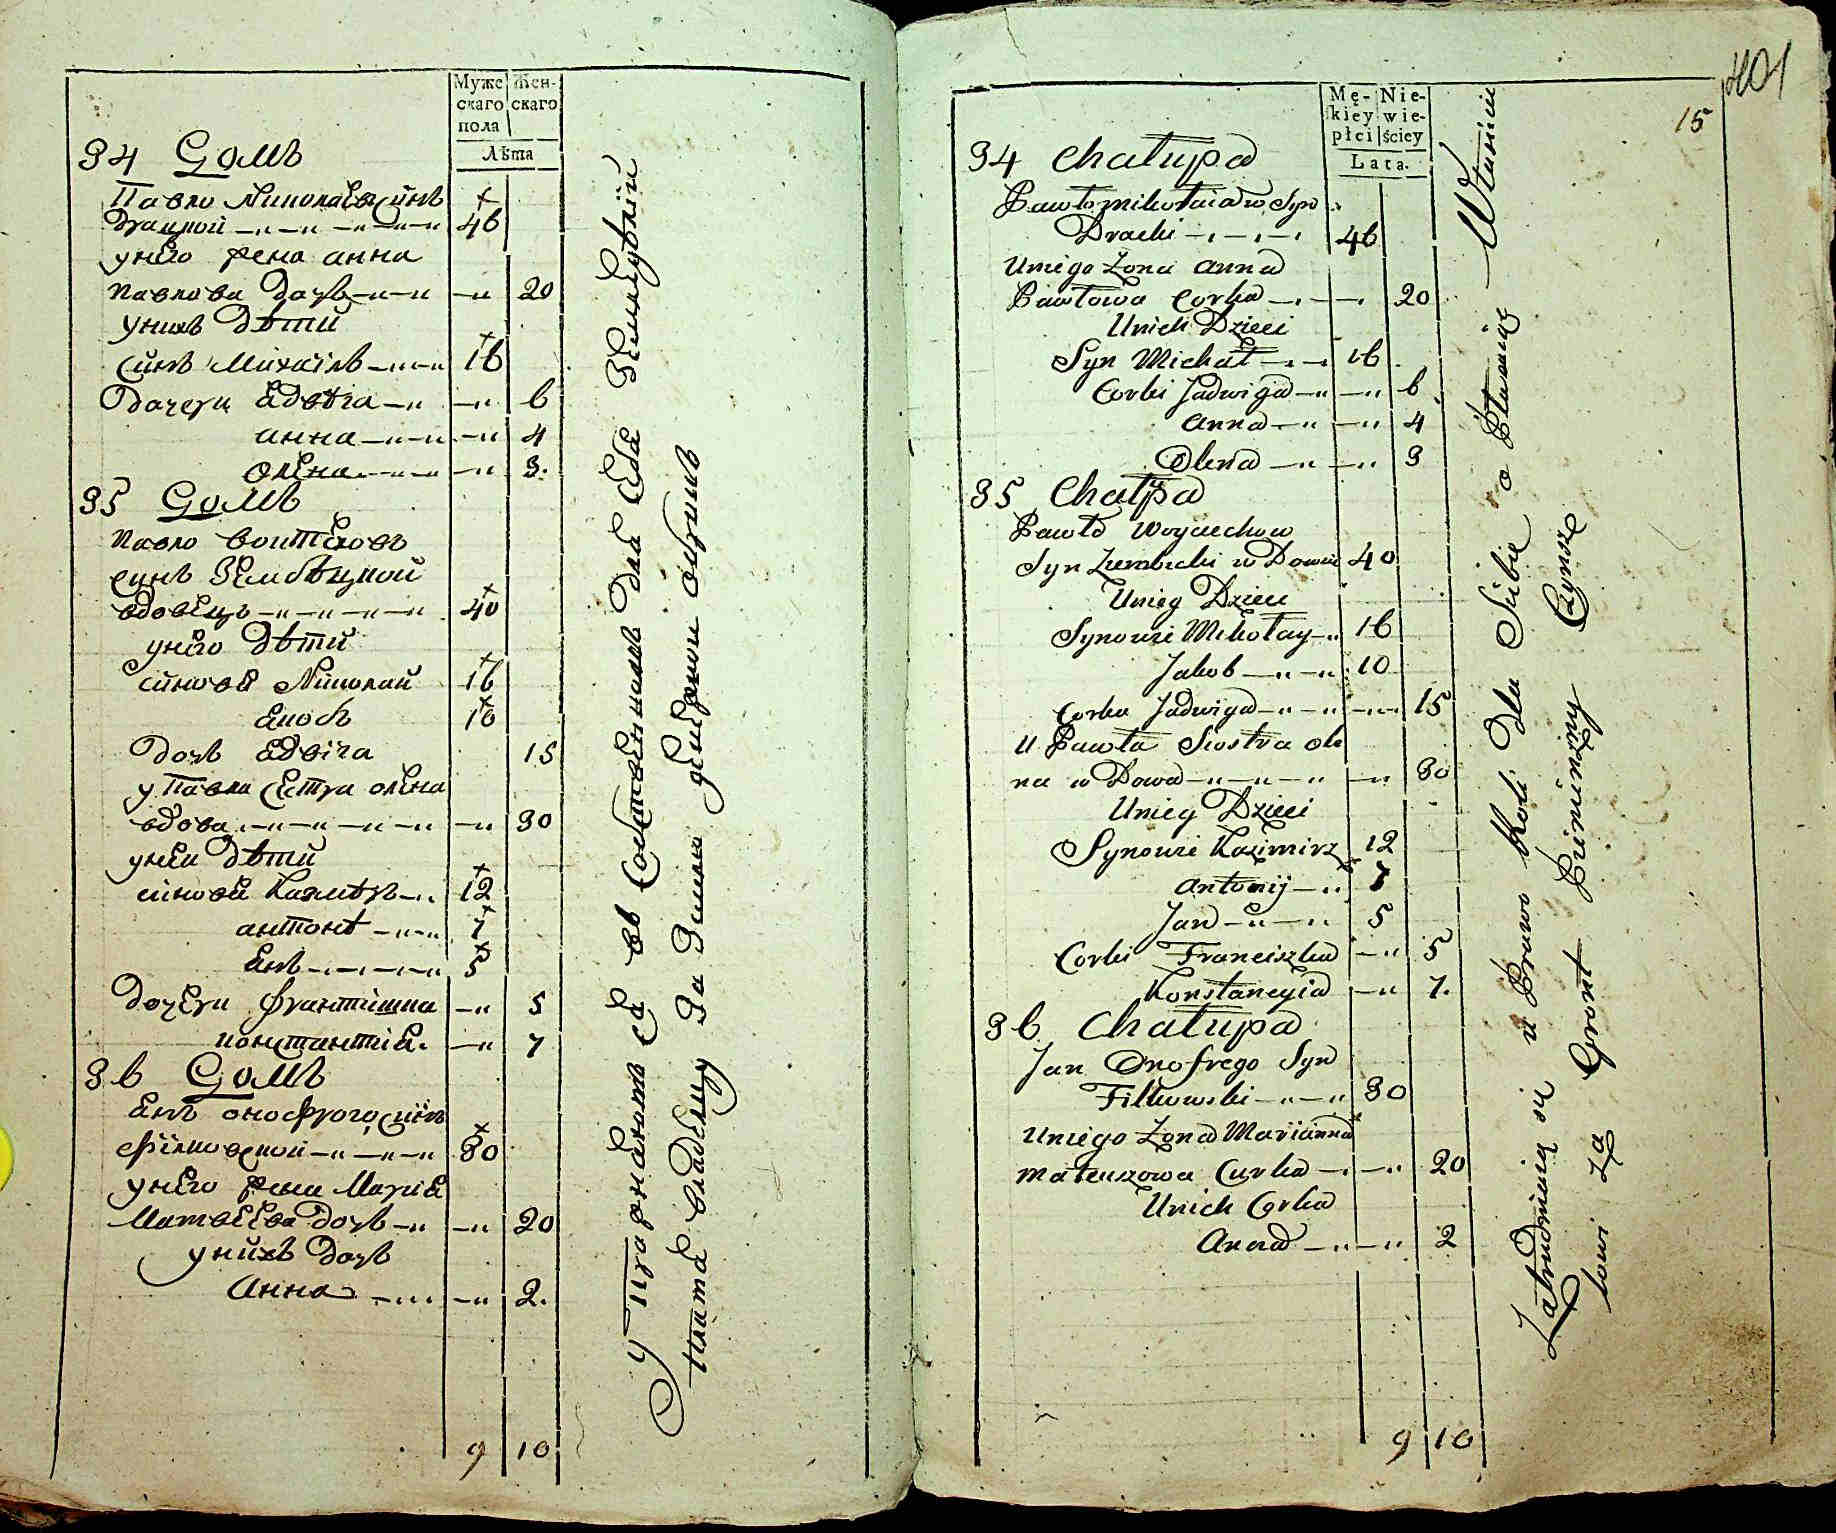 Муже Жен-
скаго скаго
пола
Лѣта
34 Домъ
Павло Николаевъ синъ
Драцкой 46
унего жена анна
павлова дочь 20
унихъ дѣти
синъ Михаілъ 16
Дочери Ядвіга 6
анна 4
олѣна 3.
35 Домъ
Павло воитеховъ
синъ Зембѣцкой
вдовецъ 40
унего дѣти
синовя Николай 16
Якобъ 10
Дочь Ядвіга 15
у Павла сестра олѣна
вдова 30
унеи дѣти
синовя Казимѣръ 12
антонѣ 7
Янъ 5
Дочери франтишка 5
константія. 7
36 Домъ
Янъ онофрого синъ
філковской 30
унего жена Марія
Матвеева дочь 20
унихъ дочь
Анна 2.
9 10
Упражняютъ ся въ состоенномъ для себя земледѣлій
платя владелцу за землю денежной
401
15
Mę- Nie-
kiey wie-
płci ściey
Lata.
34 Chałupa
Pawło mikołaiow Syn
Dracki 46
Uniego Zona Anna
Pawłowa Corka 20
Unich Dzieci
Syn Michał 16
Corki Jadwiga 6
Anna 4
Olena 3
35 Chałpa
Pawło Woyciechow
Syn Zembicki w Dowiec 40
Unieg Dzieci
Synowie Mikołay 16
Jakob 10
Corka Jadwiga 15
U Pawła Siostra ole
na w Dowa 30
Uniey Dzieci
Synowie Kazimirz 12
Antonij 7
Jan 5
Corki Franciszka 5
Konstancyia 7.
36 Chałupa
Jan Onofrego Syn
Filkowski 30
Uniego Zona Marianna
mateuszowa Curka 20
Unich Corka
Anna 2
9 10
Zatrudniaią się u Prawo Roli Dla Siebie o Płacaiąc Włascicie
lowi Za Gront Pieniężny Czynsz